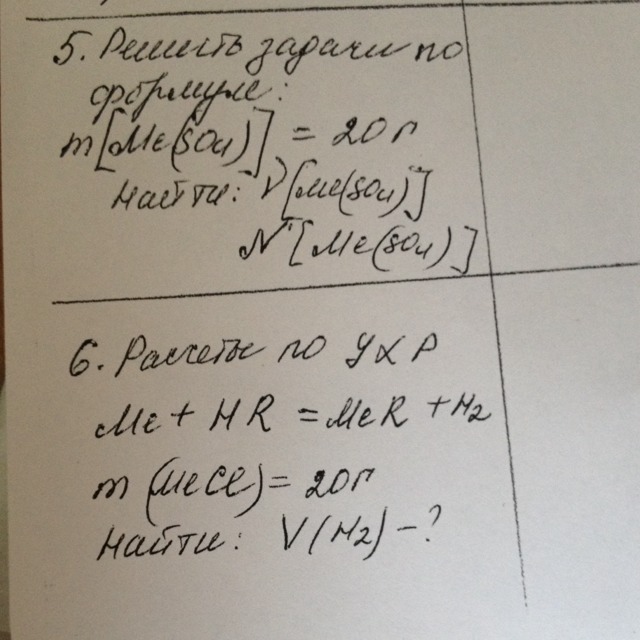 5. Решить задачи по
формуле:
m[Me(SO4)] = 20 г
Найти: V[Me(SO4)]
N[Me(SO4)]
6. Расчеты по УХР
Me + HR = MeR + H2
m (MeCl) = 20 г
Найти: V(H2) - ?